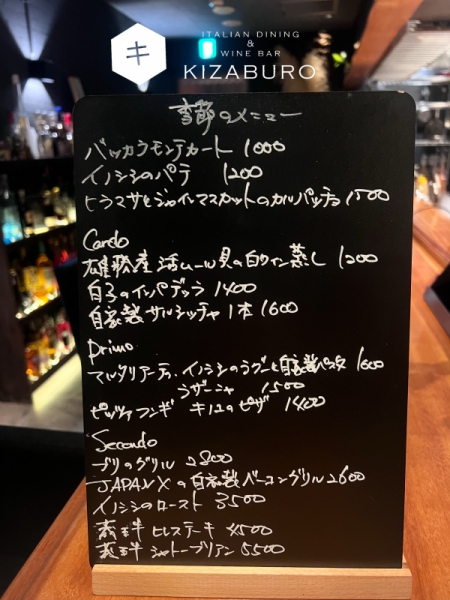 キ
ITALIAN DINING
&
WINE BAR
KIZABURO
季節のメニュー
バッカラモンテカート 1000
イノシシのパテ 1200
ヒラマサとシャインマスカットのカルパッチョ 1500
Cardo
産 活ムール貝の白ワイン蒸し 1200
白子のインパデッラ 1400
自家製サルシッチャ 1本 1600
Primo
マルタリアーティ イノシシのラグーと自家製パスタ 1600
ラザーニャ 1500
ピッツァフンギ キノコのピザ 1400
Secondo
ブリのグリル 2800
JAPAN Xの自家製ベーコングリル 2600
イノシシのロースト 3500
牛 ヒレステーキ 4500
牛 シャトーブリアン 5500